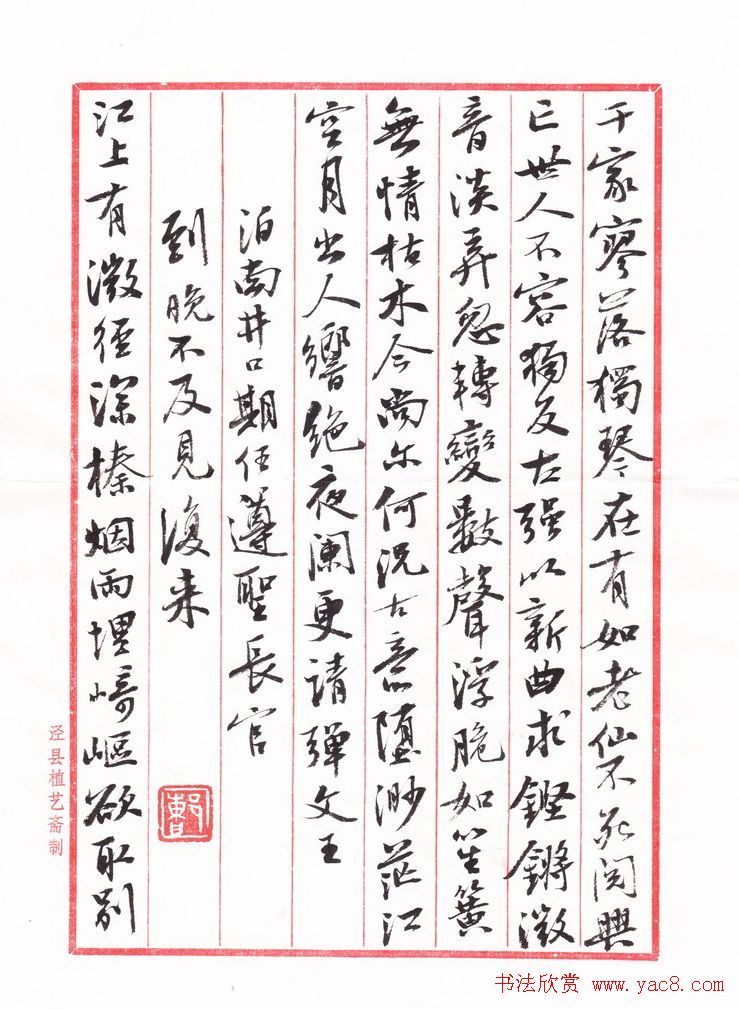 千家寥落獨琴在有如老仙不死閱興
亡世人不容獨反古強以新曲求鏗鏘微
音淡弄忽轉變數聲浮脆如笙簧
無情枯木今尚尔何況古意墮渺茫江
空月出人響絕夜闌更請彈文王
泊南井口期任遵聖長官
到晚不及見復来
江上有微徑深榛烟雨埋崎嶇欲取別
泾县植艺斋制
书法欣赏 www.yac8.com